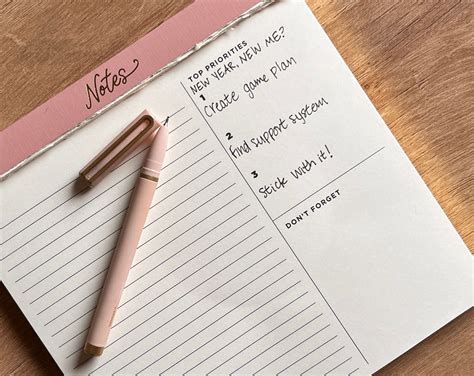 Notes
TOP PRIORITIES
NEW YEAR, NEW ME?
1
Create game plan
2
Find support system
3
Stick with it!
DON'T FORGET